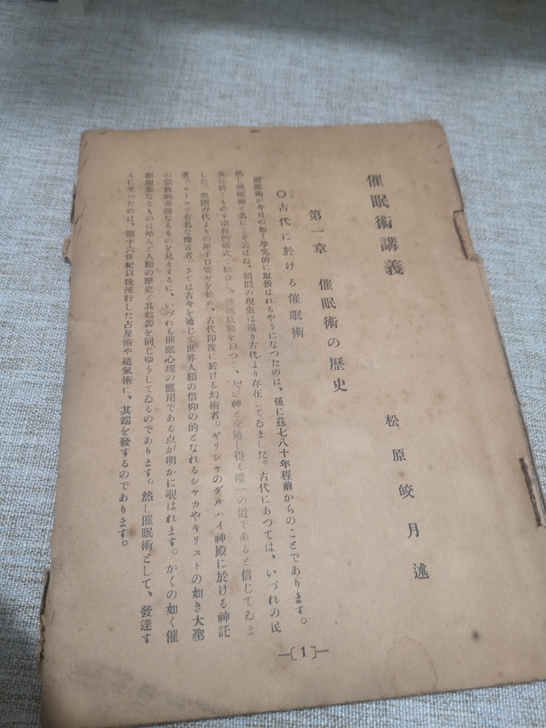 催眠術講義
松原皎月述
第一章　催眠術の歴史
○古代に於ける催眠術
催眠術が今日の如く學究的に取扱はれるやうになつたのは、僅に茲七八十年程前からのことであります。
然し催眠術と名にこそ云はね、類似の現象は遠き古代より存在してゐました。古代にあつては、いづれの民
族に於ても宗教的儀式と結合し、催眠狀態を以つて、神と交通し得る唯一の道であると信じてゐま
した。我國古代よりの巫子口寄せを始め、古代印度に於ける幻術者。ギリシヤのダルハイ神殿に於ける神託
者。ローマの有名な豫言者。さては古今を通じて世界人類の信仰の的となれるシヤカやキリストの如き大聖
の宗敎的奇蹟なるものを見まするに、いづれも催眠心理の應用である点が明かに覗はれます。かくの如く催
眠現象なるものは殆んど人類の歷史と其起源を同じゆうしてゐるのであります。然し催眠術として、發達す
るに至つたのは、第十六世紀以後流行した占星術や磁氣術に、其端を發するのであります。
—〔1〕—